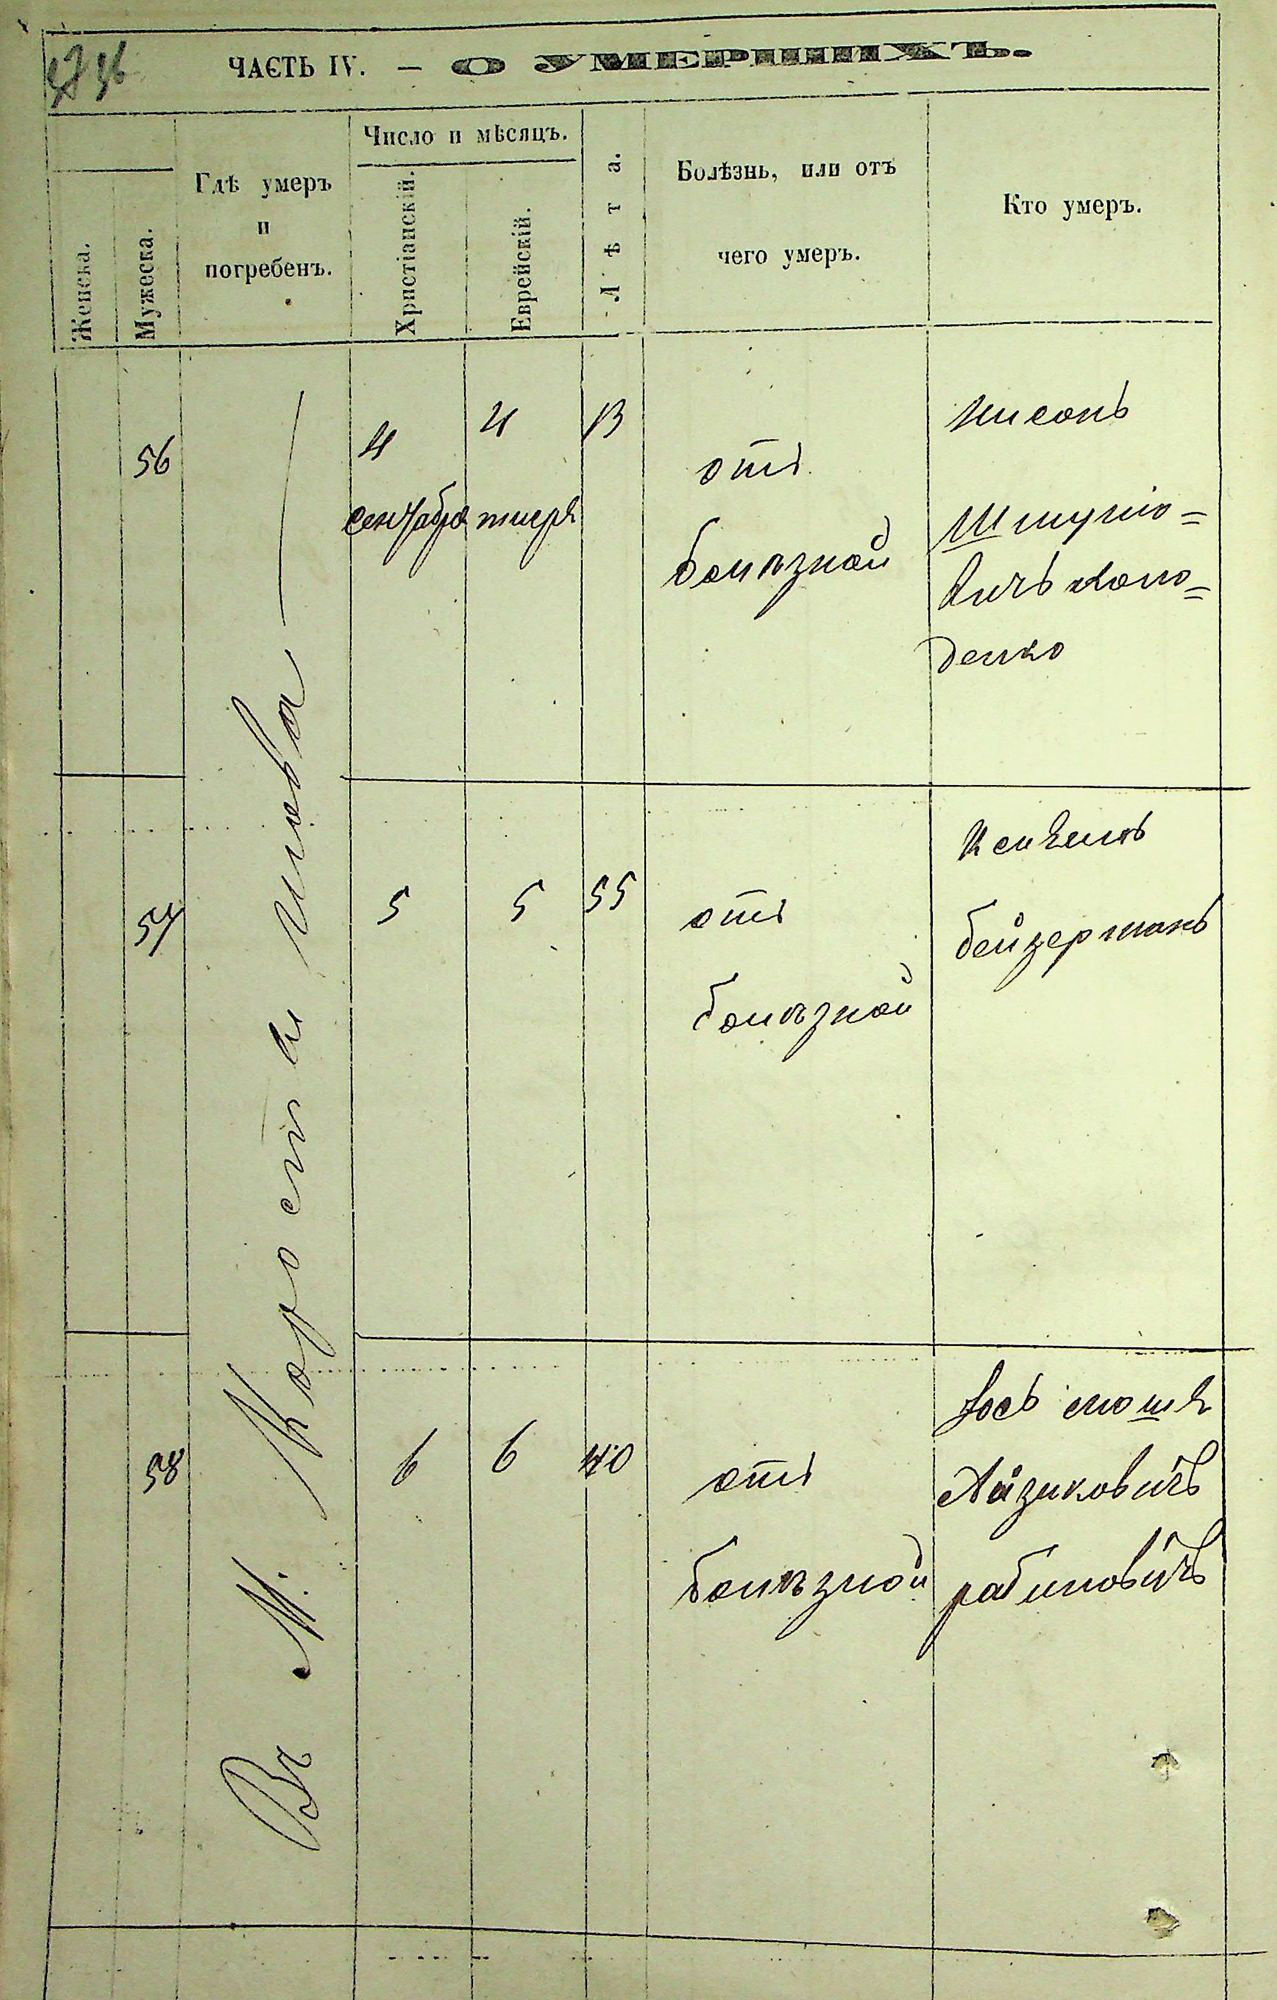 ЧАСТЬ IV. — О УМЕРШИХЪ.
Женска.
Мужеска.
Гдѣ умеръ
и
погребенъ.
Число и мѣсяцъ.
Христіанскій.
Еврейскій.
Лѣта.
Болѣзнь, или отъ
чего умеръ.
Кто умеръ.
Въ М. Коростишева
56
4
4
сентабра тишря
отъ
болѣзной
Нисонъ
Шмуліо=
вичъ Коло=
денко
57
5
5
55
отъ
болѣзной
бейзерманъ
58
6
6
40
отъ
болѣзной
Іось мошя
Айзиковичъ
рабиновичъ